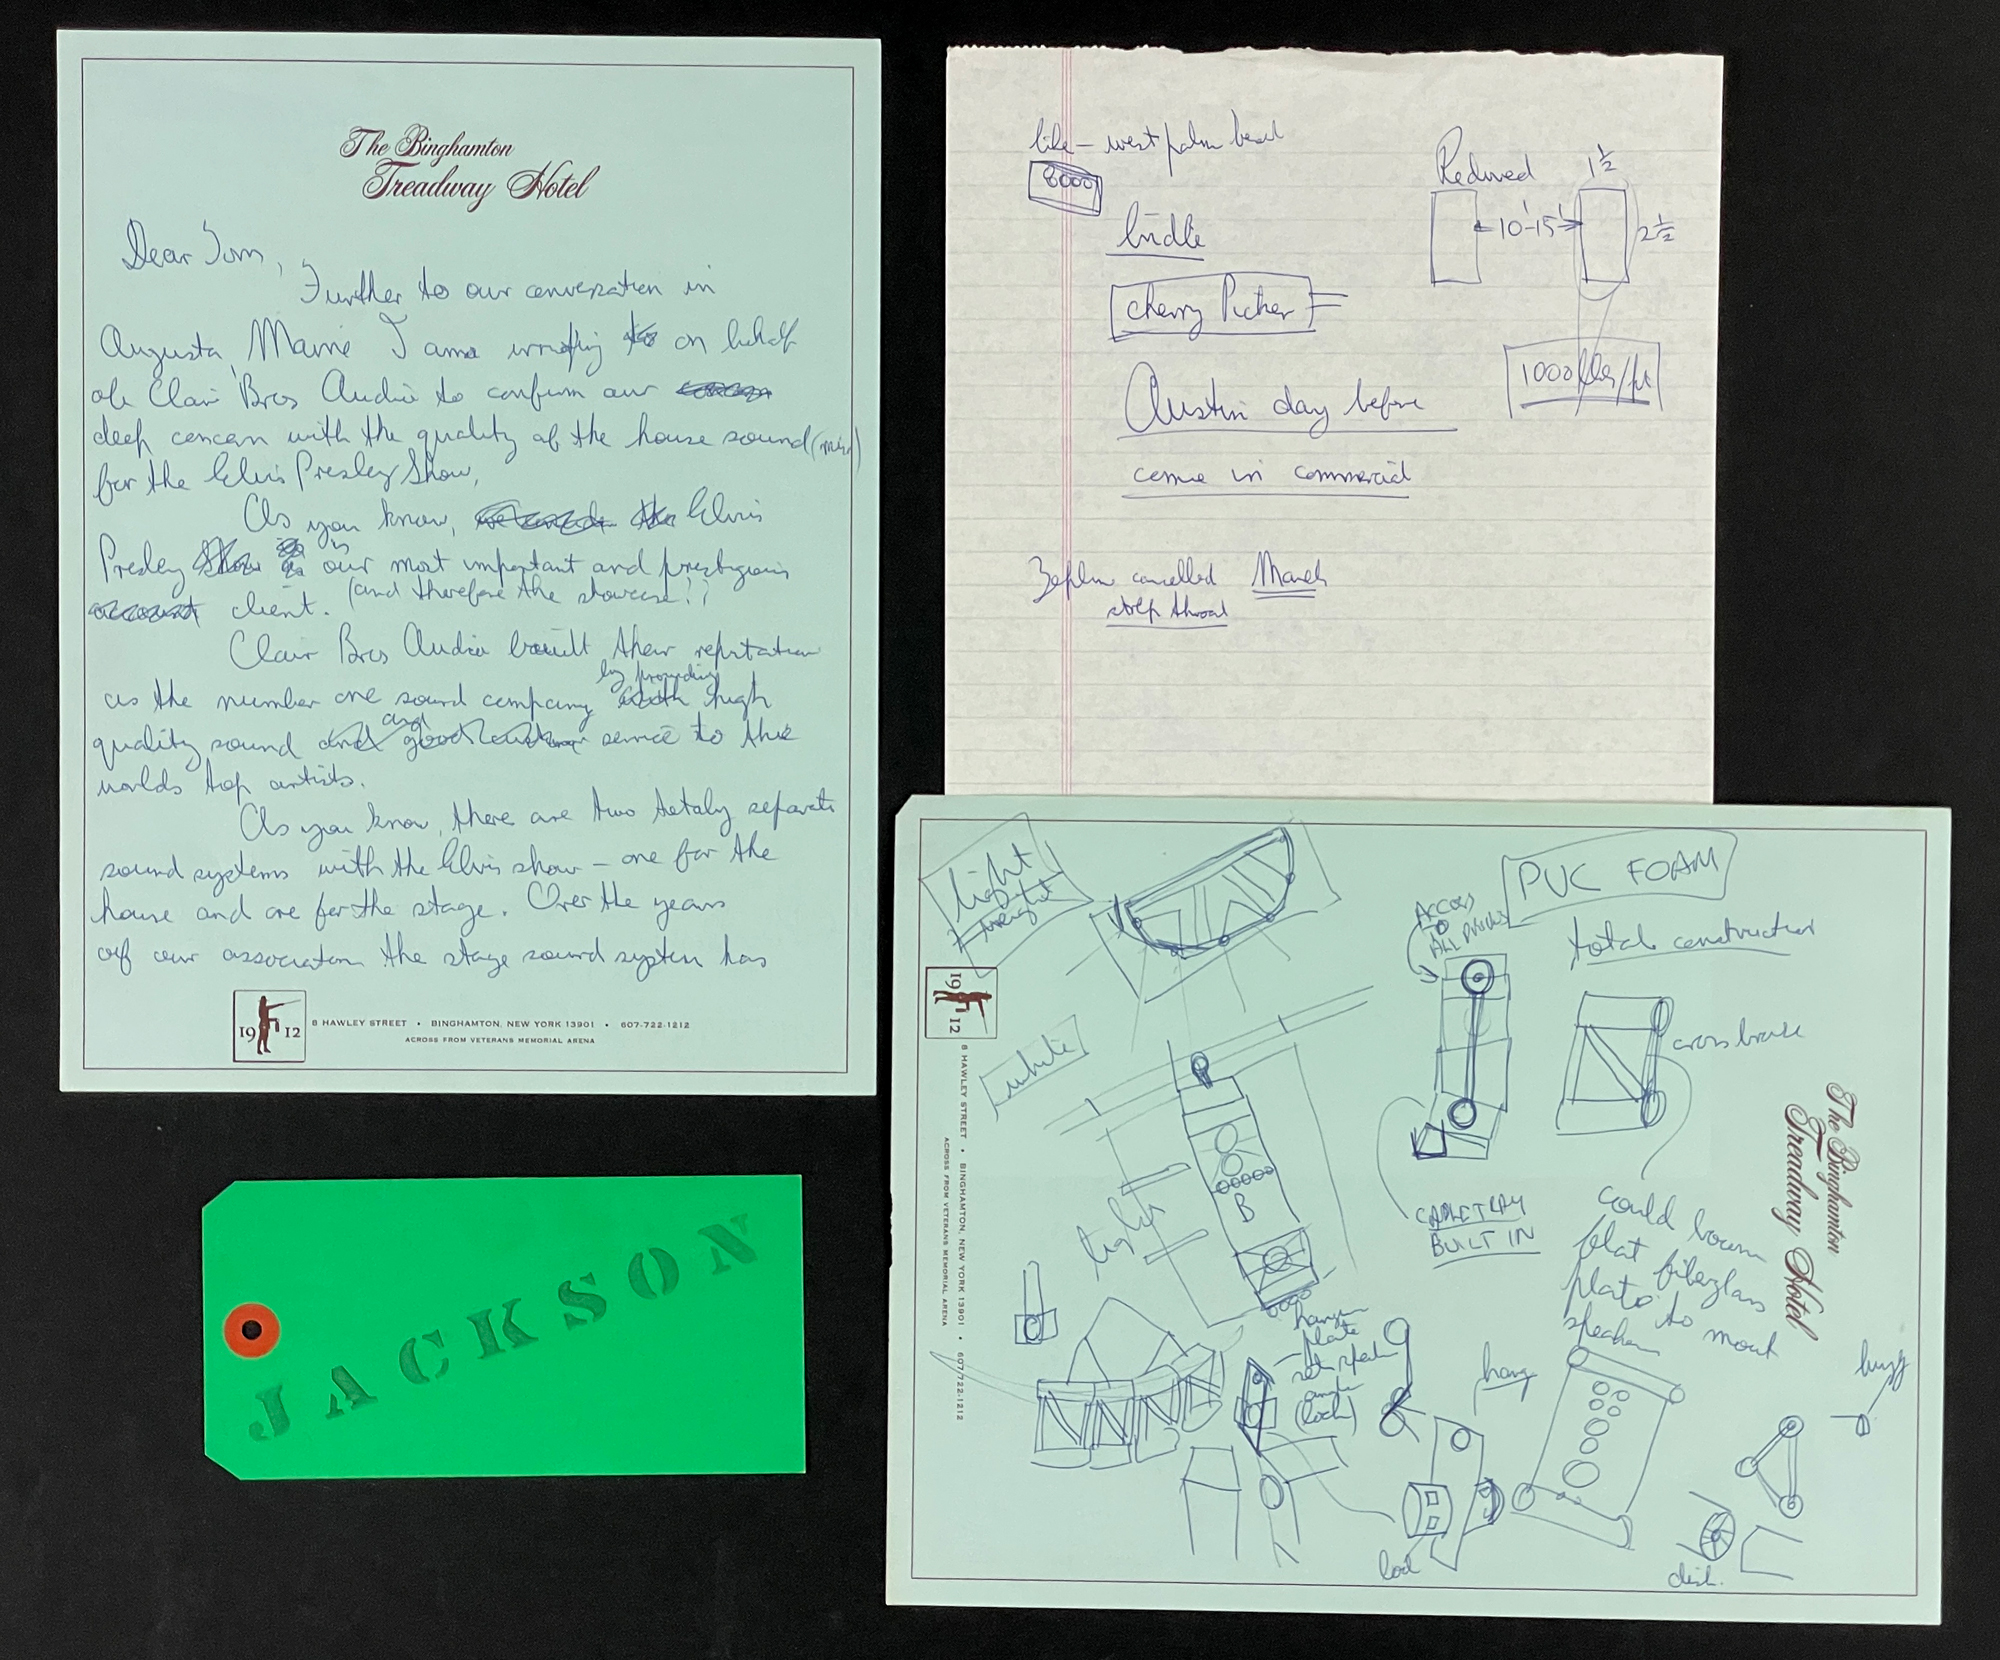 The Binghamton
Treadway Hotel
Dear Tom,
Further to our conversation in
Augusta, Maine I am writing on behalf
of Clair Bros Audio to confirm our
deep concern with the quality of the house sound (mix)
for the Elvis Presley Show.
As you know, Elvis
Presley is our most important and prestigious
client. (and therefore the showcase??
Clair Bros Audio built their reputation
as the number one sound company by providing high
quality sound and service to the
worlds top artists.
As you know, there are two totaly separate
sound systems with the Elvis show – one for the
house and one for the stage. Over the years
of our association the stage sound system has
1912
8 HAWLEY STREET • BINGHAMTON, NEW YORK 13901 • 607-722-1212
ACROSS FROM VETERANS MEMORIAL ARENA
like – west palm beach
8000
bridle
cherry Picker
Austin day before
come in commercial
Zeplin cancelled March
strep throat
Reduced
1½
10'-15'
2½
1000 lbs/pt
JACKSON
light
weight
white
lights
ACCESS
TO
ALL
PVC FOAM
total construction
cross brace
B
CABLE TRAY
BUILT IN
could
flat fiberglass
plate to mount
speaker
plate
angle
(lock)
hang
The Binghamton
Treadway Hotel
1912
8 HAWLEY STREET • BINGHAMTON, NEW YORK 13901 • 607/722-1212
ACROSS FROM VETERANS MEMORIAL ARENA